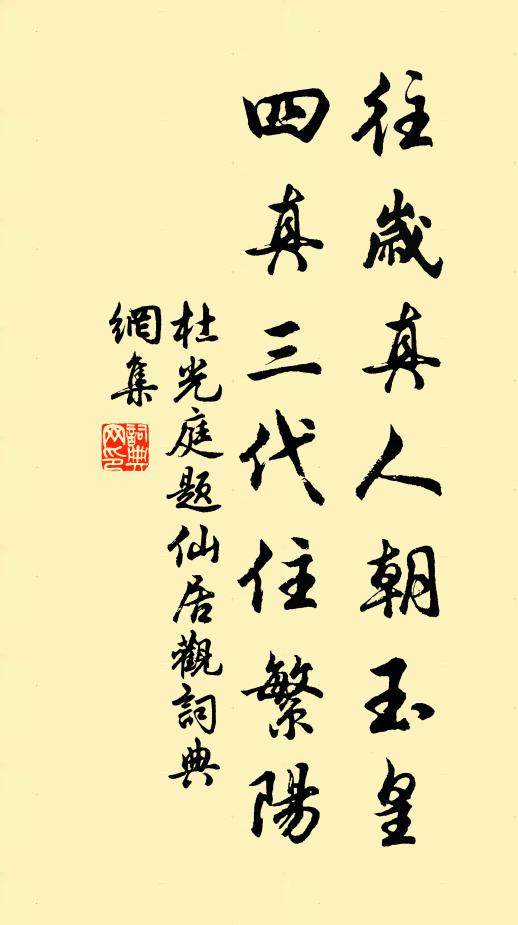 往歲真人朝玉皇
四真三代住繁陽
杜光庭題仙居觀詞典
網集
詞典
网印